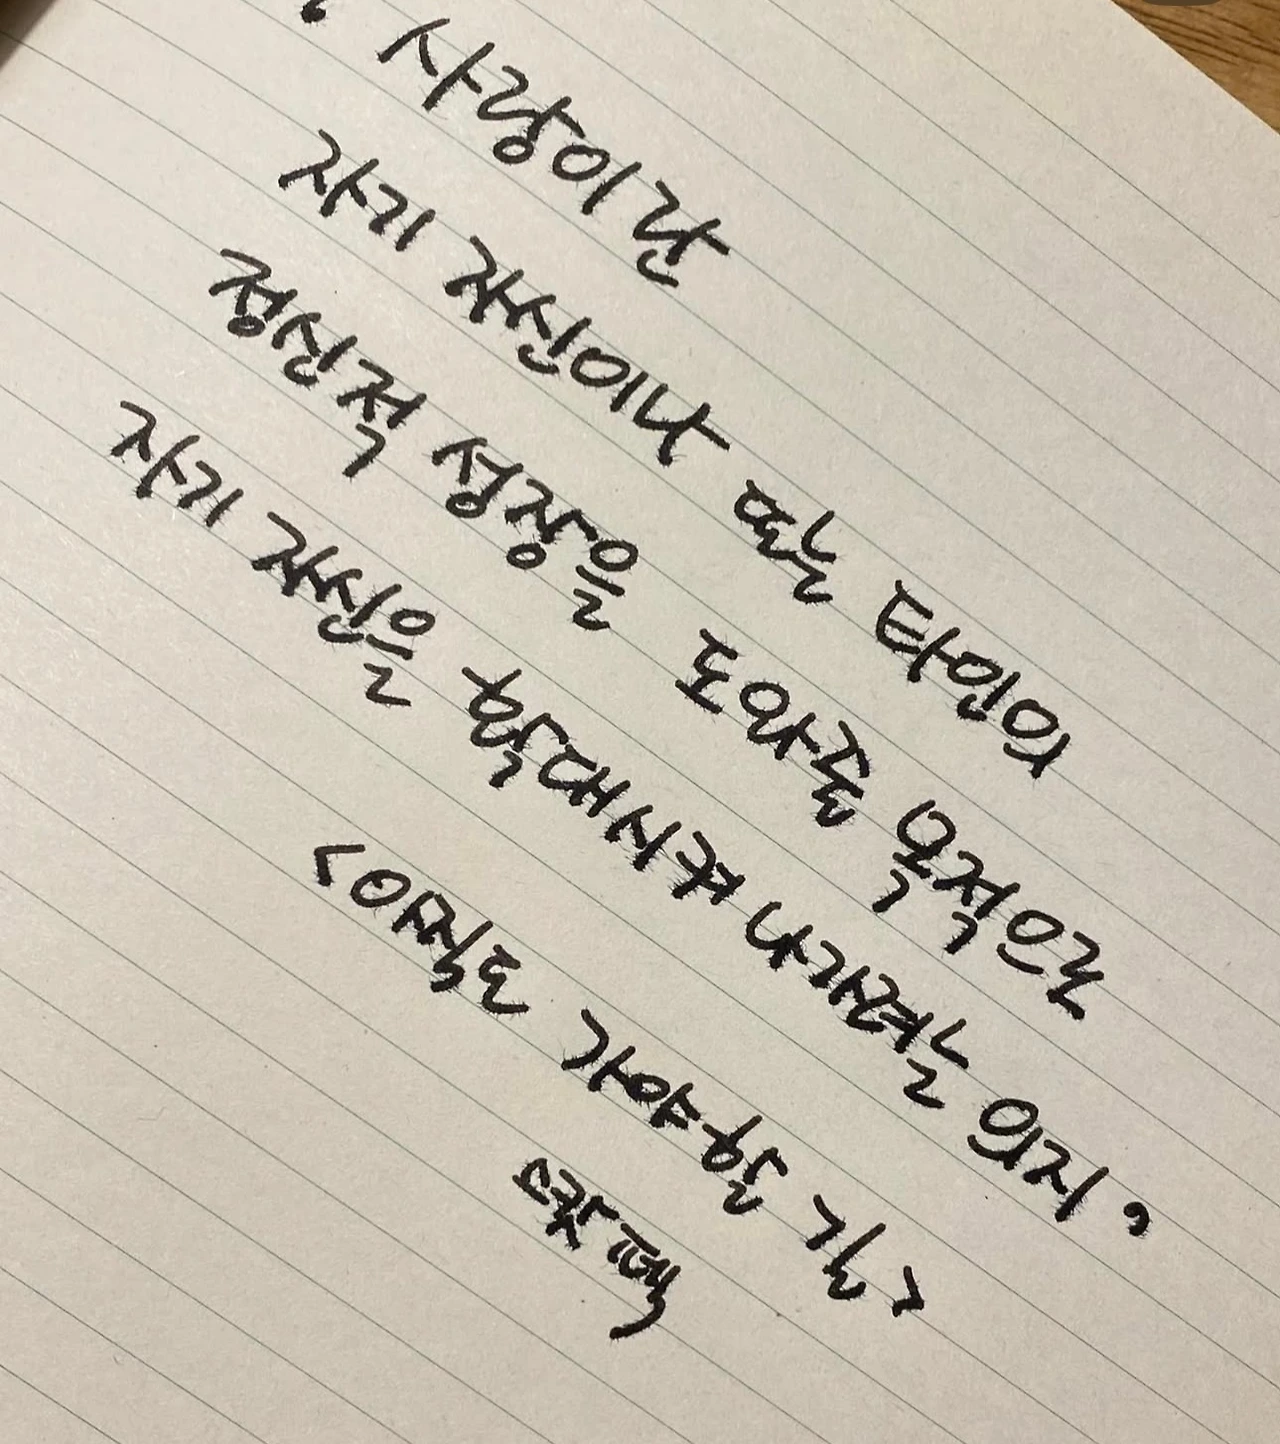 ' 사랑이란
자기 자신이나 또는 타인의
정신적 성장을 도와줄 목적으로
자기 자신을 확대시켜 나가려는 의지 '
<아직도 가야할 길>
스캇펙